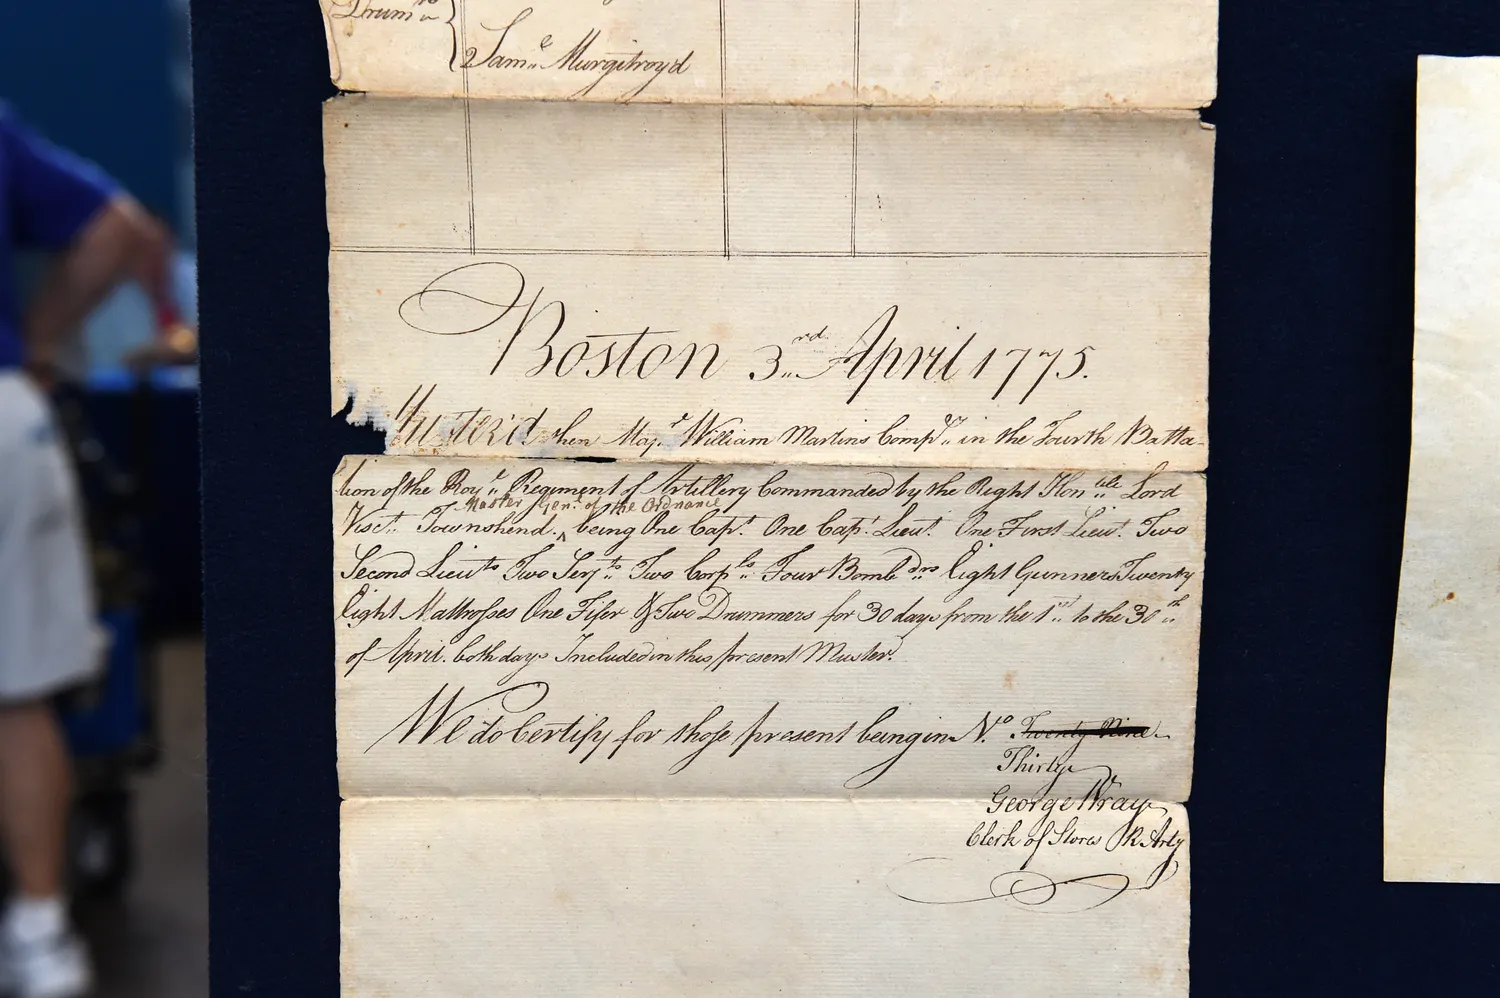 Drumrs
Same Murgitroyd
Boston 3rd April 1775.
Muster'd then Majr William Martins Compy in the Fourth Batta-
lion of the Royl Regiment of Artillery Commanded by the Right Honble Lord
Master Genl of the Ordnance
Visct Townshend. ^ being One Capt. One Capt. Lieut. One First Lieut. Two
Second Lieuts Two Serjts Two Corpls Four Bombdrs Eight Gunners Twenty
Eight Mattrosses One Fifer & Two Drummers for 30 days from the 1st to the 30th
of April. both days Included in this present Muster.
We do Certify for those present being in No Twenty Nine
Thirty
George Wray
Clerk of Stores R Arty